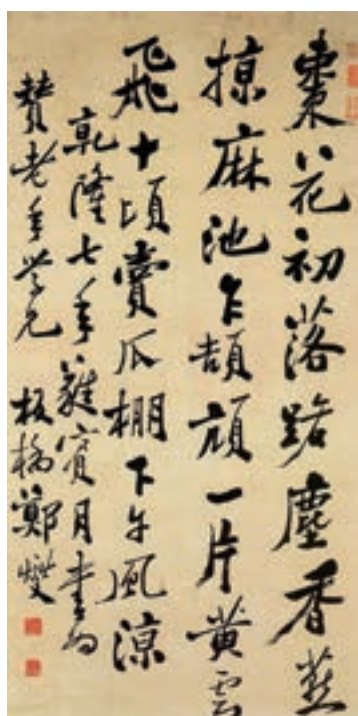 棗花初落路塵香燕
掠麻池乍頡頏一片黄雲
飛十頃賣瓜棚下午風涼
乾隆七年蕤賓月書為
賛老年學兄 板橋鄭燮